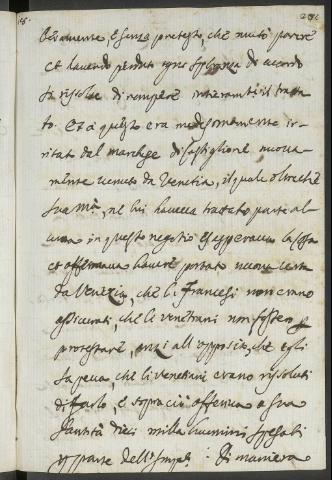 beramente, e senza pretesto, che mutò parere
et havendo perduto ogni speranza di accordo
si risolse di rompere interamente il tratta
to. Et à questo era medesimamente ir-
ritato dal marchese di Castiglione nuova-
mente venuto da Venetia, il quale oltre che
sua Mtà, ne lui haveva trattato parte al-
cuna in questo negotio esasperava la cosa
et affermava havere portato nuova certa
da Venezia, che li Francesi non erano
assicurati, che li venetiani non fossero
protestare, anzi all'opposito, che egli
sapeva, che li venetiani erano risoluti
di farlo, e sopra ciò offeriva a sua
Santità dieci milla huomini pagati
per parte dell'Imp. Di maniera